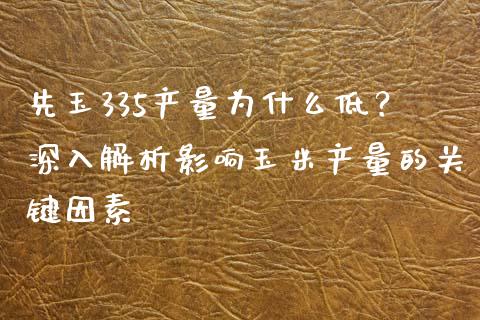 先玉335产量为什么低？
深入解析影响玉米产量的关
键因素